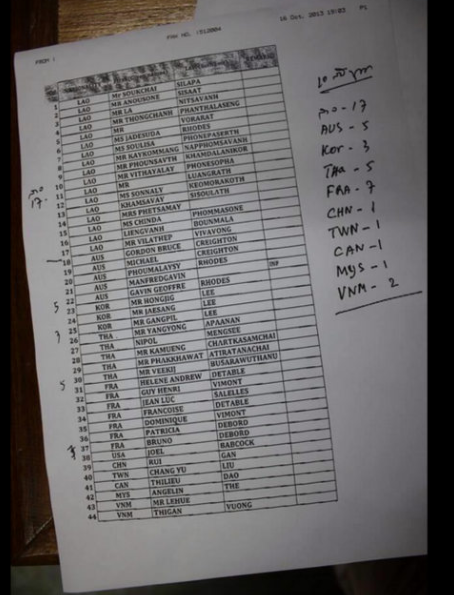 FROM :
FAX NO. :512004
16 Oct. 2013 19:03 P1
1 LAO Mr SOUKCHAI SILAPA
2 LAO MR ANOUSONE SISAAT
3 LAO MR LA NITSAVANH
4 LAO MR THONGCHANH PHANTHALASENG
5 LAO MR VORARAT
6 LAO MS JADESUDA RHODES
7 LAO MS SOULISA PHONEPASERTH
8 LAO MR KAYKOMMANG NAPPHOMSAVANH
9 LAO MR PHOUNSAVTH KHAMDALANIKOR
10 LAO MR VITHAYALAY PHONESOPHA
11 LAO MR LUANGRATH
12 LAO MS SONNALY KEOMORAKOTH
13 LAO KHAMSAVAY SISOULATH
14 LAO MRS PHETSAMAY
15 LAO MS CHINDA PHOMMASONE
16 LAO LIENGVANH BOUNMALA
17 LAO MR VILATHEP VIVAVONG
18 AUS GORDON BRUCE CREIGHTON
19 AUS MICHAEL CREIGHTON
20 AUS PHOUMALAYSY RHODES
21 AUS MANFREDGAVIN INF
22 AUS GAVIN GEOFFRE RHODES
23 KOR MR HONGJIG LEE
24 KOR MR JAESANG LEE
25 KOR MR GANGPIL LEE
26 THA MR YANGYONG APAANAN
27 THA NIPOL MENGSEE
28 THA MR KAMUENG CHARTKASAMCHAI
29 THA MR PHAKKHAWAT ATIRATANACHAI
30 THA MR YEEKIJ BUSARAWUTHANU
31 FRA HELENE ANDREW DETABLE
32 FRA GUY HENRI VIMONT
33 FRA JEAN LUC SALELLES
34 FRA FRANCOISE DETABLE
35 FRA DOMINIQUE VIMONT
36 FRA PATRICIA DEBORD
37 FRA BRUNO DEBORD
38 USA JOEL BABCOCK
39 CHN RUI GAN
40 TWN CHANG YU LIU
41 CAN THILIEU DAO
42 MYS ANGELIN THE
43 VNM MR LEHUE
44 VNM THIGAN VUONG
ລາວ
17.
5
3
5
7
ລາວ - 17
AUS - 5
Kor - 3
THa - 5
FRA - 7
CHN - 1
TWN - 1
CAN - 1
MYS - 1
VNM - 2